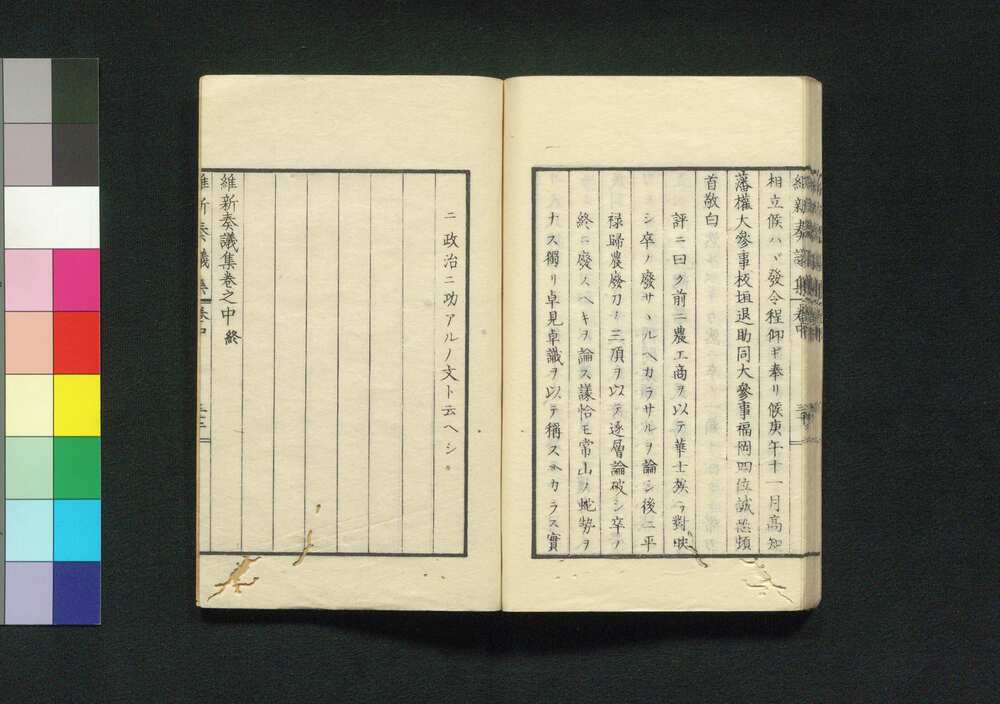 維新奏議集 卷中
相立候ハヾ發令程仰ギ奉リ候庚午十一月高知
藩權大參事板垣退助同大參事福岡四位誠恐頓
首敬白
評ニ曰ク前ニ農工商ヲ以テ華士族ニ對映
シ卒ノ廢サヽルヘカラサルヲ論シ後ニ平
禄歸農廢刀ノ三項ヲ以テ逐層論破シ卒ノ
終ニ廢スヘキヲ論ス議恰モ常山ノ蛇勢ヲ
ナス獨リ卓見卓識ヲ以テ稱スヘカラス實
ニ政治ニ功アルノ文ト云ヘシ。
維新奏議集卷之中終
維新奏議集 卷中